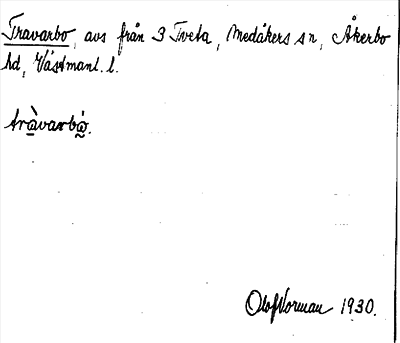 Travarbo, avs från 3 Tveta, Medåkers sn, Åkerbo
hd, Västmanl. l.
tràvarbó̰.
Olof Norman 1930.